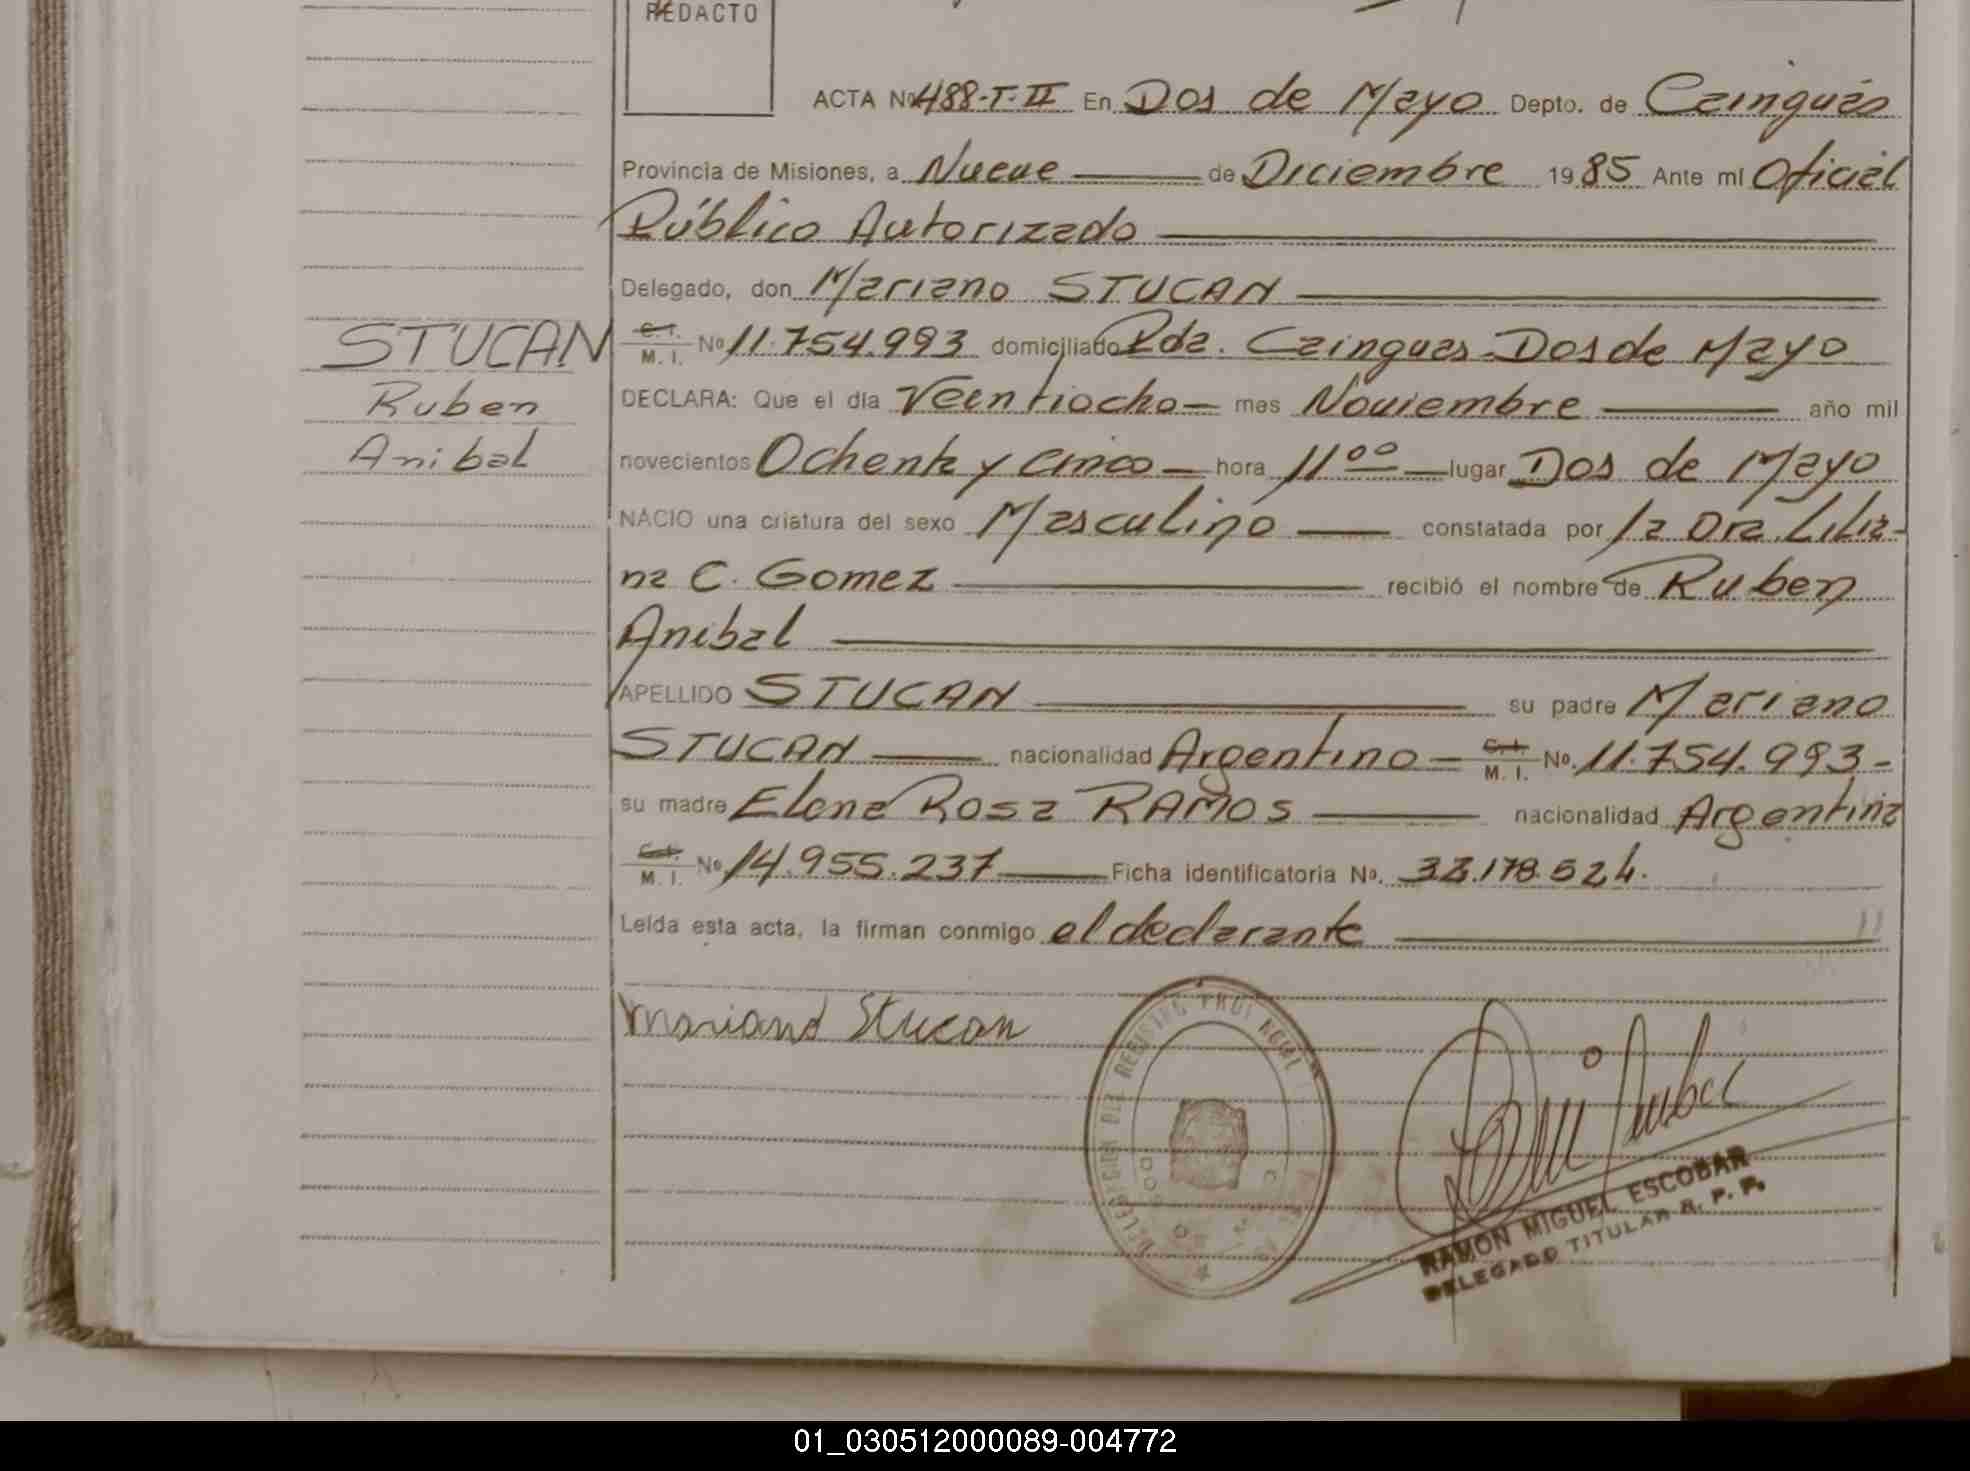 REDACTO
ACTA Nº 488-T-II En Dos de Mayo Depto. de Cainguás
Provincia de Misiones, a Nueve de Diciembre 1985 Ante mí Oficial
Público Autorizado
Delegado, don Mariano STUCAN
C.I. M.I. Nº 11.754.993 domiciliado Pda. Cainguas-Dos de Mayo
STUCAN
DECLARA: Que el día Veintiocho mes Noviembre año mil
Ruben
novecientos Ochenta y cinco hora 11ºº lugar Dos de Mayo
Anibal
NACIO una criatura del sexo Masculino constatada por la Dra. Lilia-
na C. Gomez recibió el nombre de Ruben
Anibal
APELLIDO STUCAN su padre Mariano
STUCAN nacionalidad Argentino C.I. M.I. Nº. 11.754.993-
su madre Elena Rosa RAMOS nacionalidad Argentina
C.I. M.I. Nº 14.955.237 Ficha identificatoria Nº. 33.178.524.
Leída esta acta, la firman conmigo el declarante
Mariano Stucan
RAMON MIGUEL ESCOBAR
DELEGADO TITULAR R. P. P.
01_030512000089-004772